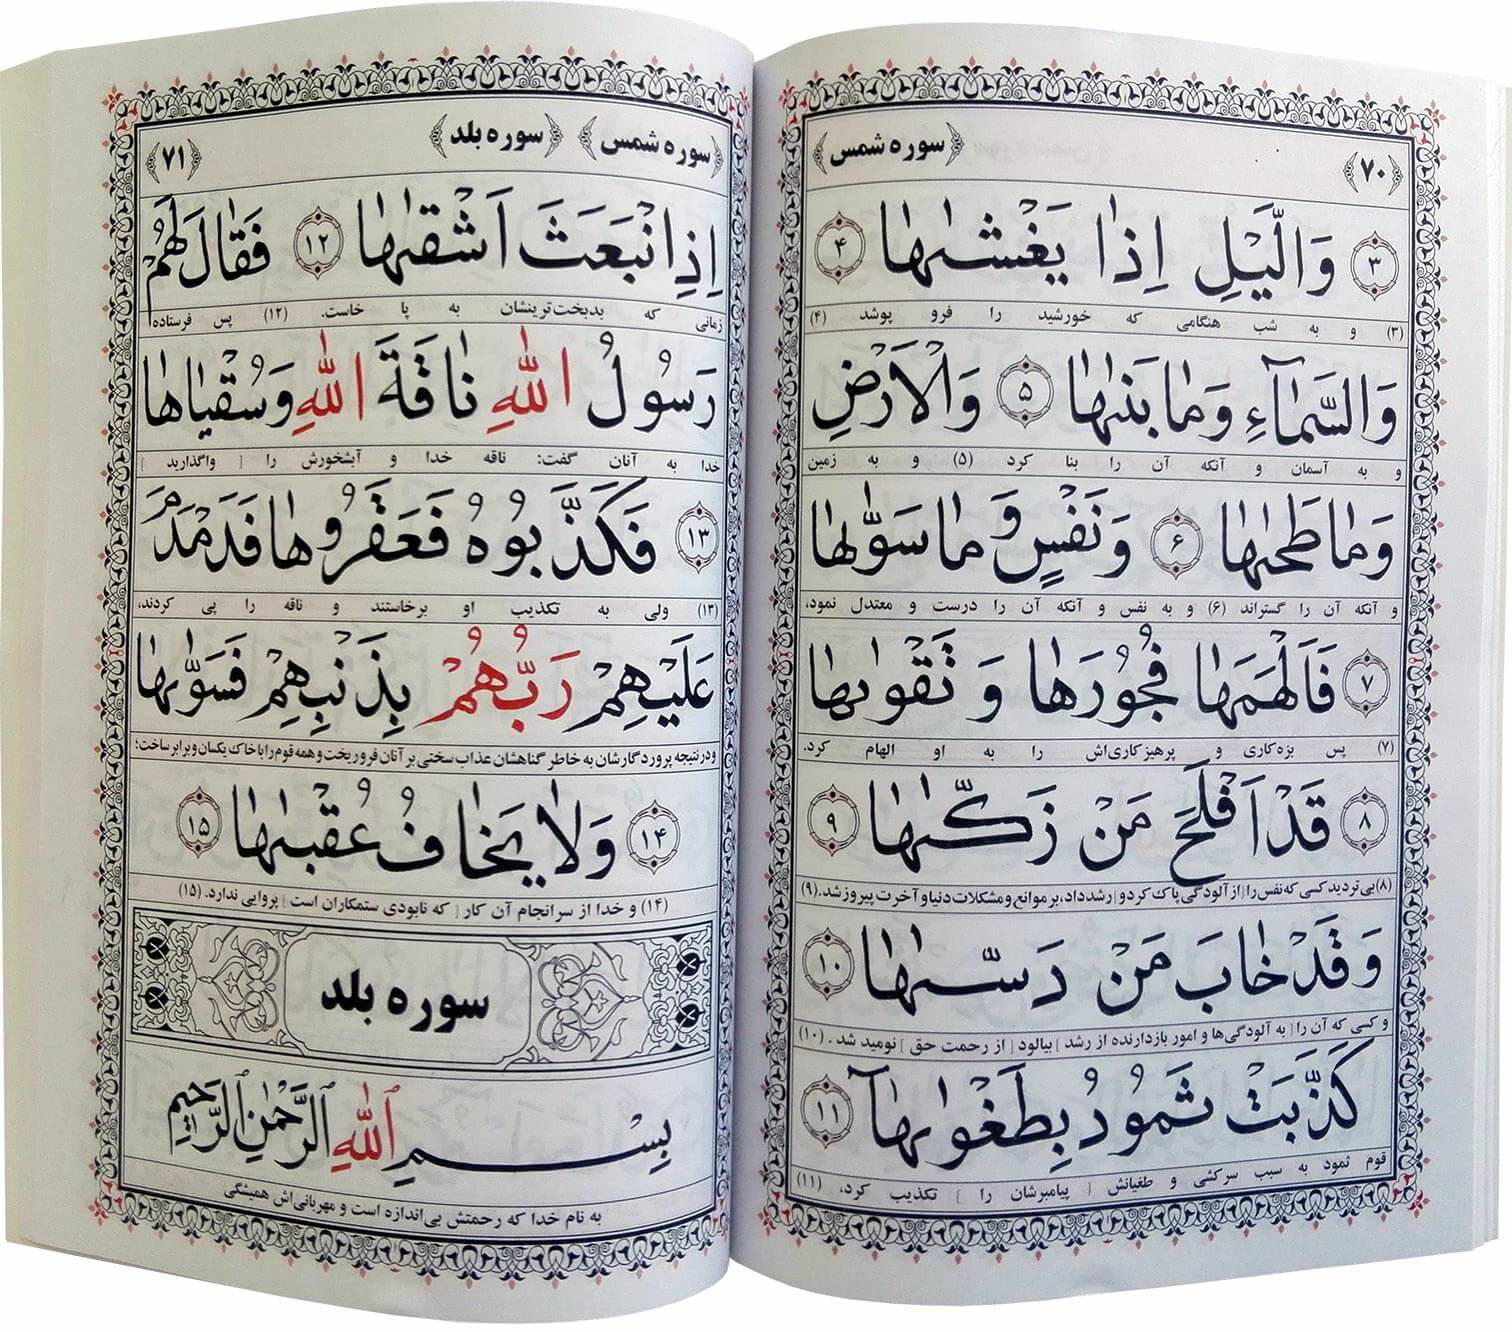 ﴿۷۰﴾ ﴿سوره شمس﴾
۳ وَالَّيْلِ اِذٰا يَغْشٰىهٰا ۴
(۳) و به شب هنگامی که خورشید را فرو پوشد (۴)
وَالسَّمٰآءِ وَمٰا بَنٰىهٰا ۵ وَالْاَرْضِ
و به آسمان و آنکه آن را بنا کرد (۵) و به زمین
وَمٰا طَحٰىهٰا ۶ وَنَفْسٍ وَمٰا سَوّٰىهٰا
و آنکه آن را گستراند (۶) و به نفس و آنکه آن را درست و معتدل نمود،
۷ فَاَلْهَمَهٰا فُجُورَهٰا وَ تَقْوٰىهٰا
(۷) پس بزه‌کاری و پرهیزکاری‌اش را به او الهام کرد.
۸ قَدْ اَفْلَحَ مَنْ زَكّٰىهٰا ۹
(۸) بی‌تردید کسی که نفس را [ از آلودگی پاک کرد و ] رشد داد، بر موانع و مشکلات دنیا و آخرت پیروز شد. (۹)
وَقَدْ خٰابَ مَنْ دَسّٰىهٰا ۱۰
و کسی که آن را [ به آلودگی‌ها و امور بازدارنده از رشد ] بیالود [ از رحمت حق ] نومید شد. (۱۰)
كَذَّبَتْ ثَمُودُ بِطَغْوٰىهٰآ ۱۱
قوم ثمود به سبب سرکشی و طغیانش [ پیامبرشان را ] تکذیب کرد. (۱۱)
﴿سوره شمس﴾ ﴿سوره بلد﴾ ﴿۷۱﴾
اِذِ انْبَعَثَ اَشْقٰىهٰا ۱۲ فَقٰالَ لَهُمْ
زمانی که بدبخت‌ترینشان به پا خاست. (۱۲) پس فرستاده
رَسُولُ اللّٰهِ نٰاقَةَ اللّٰهِ وَسُقْيٰاهٰا
خدا به آنان گفت: ناقه خدا و آبشخورش را [ واگذارید ]
۱۳ فَكَذَّبُوهُ فَعَقَرُوهٰا فَدَمْدَمَ
(۱۳) ولی به تکذیب او برخاستند و ناقه را پی کردند،
عَلَيْهِمْ رَبُّهُمْ بِذَنْبِهِمْ فَسَوّٰىهٰا
و در نتیجه پروردگارشان به خاطر گناهشان عذاب سختی بر آنان فرو ریخت و همه قوم را با خاک یکسان و برابر ساخت؛
۱۴ وَلٰا يَخٰافُ عُقْبٰىهٰا ۱۵
(۱۴) و خدا از سرانجام آن کار [ که نابودی ستمکاران است ] پروایی ندارد. (۱۵)
سوره بلد
بِسْمِ اللّٰهِ الرَّحْمٰنِ الرَّحيمِ
به نام خدا که رحمتش بی‌اندازه است و مهربانی‌اش همیشگی